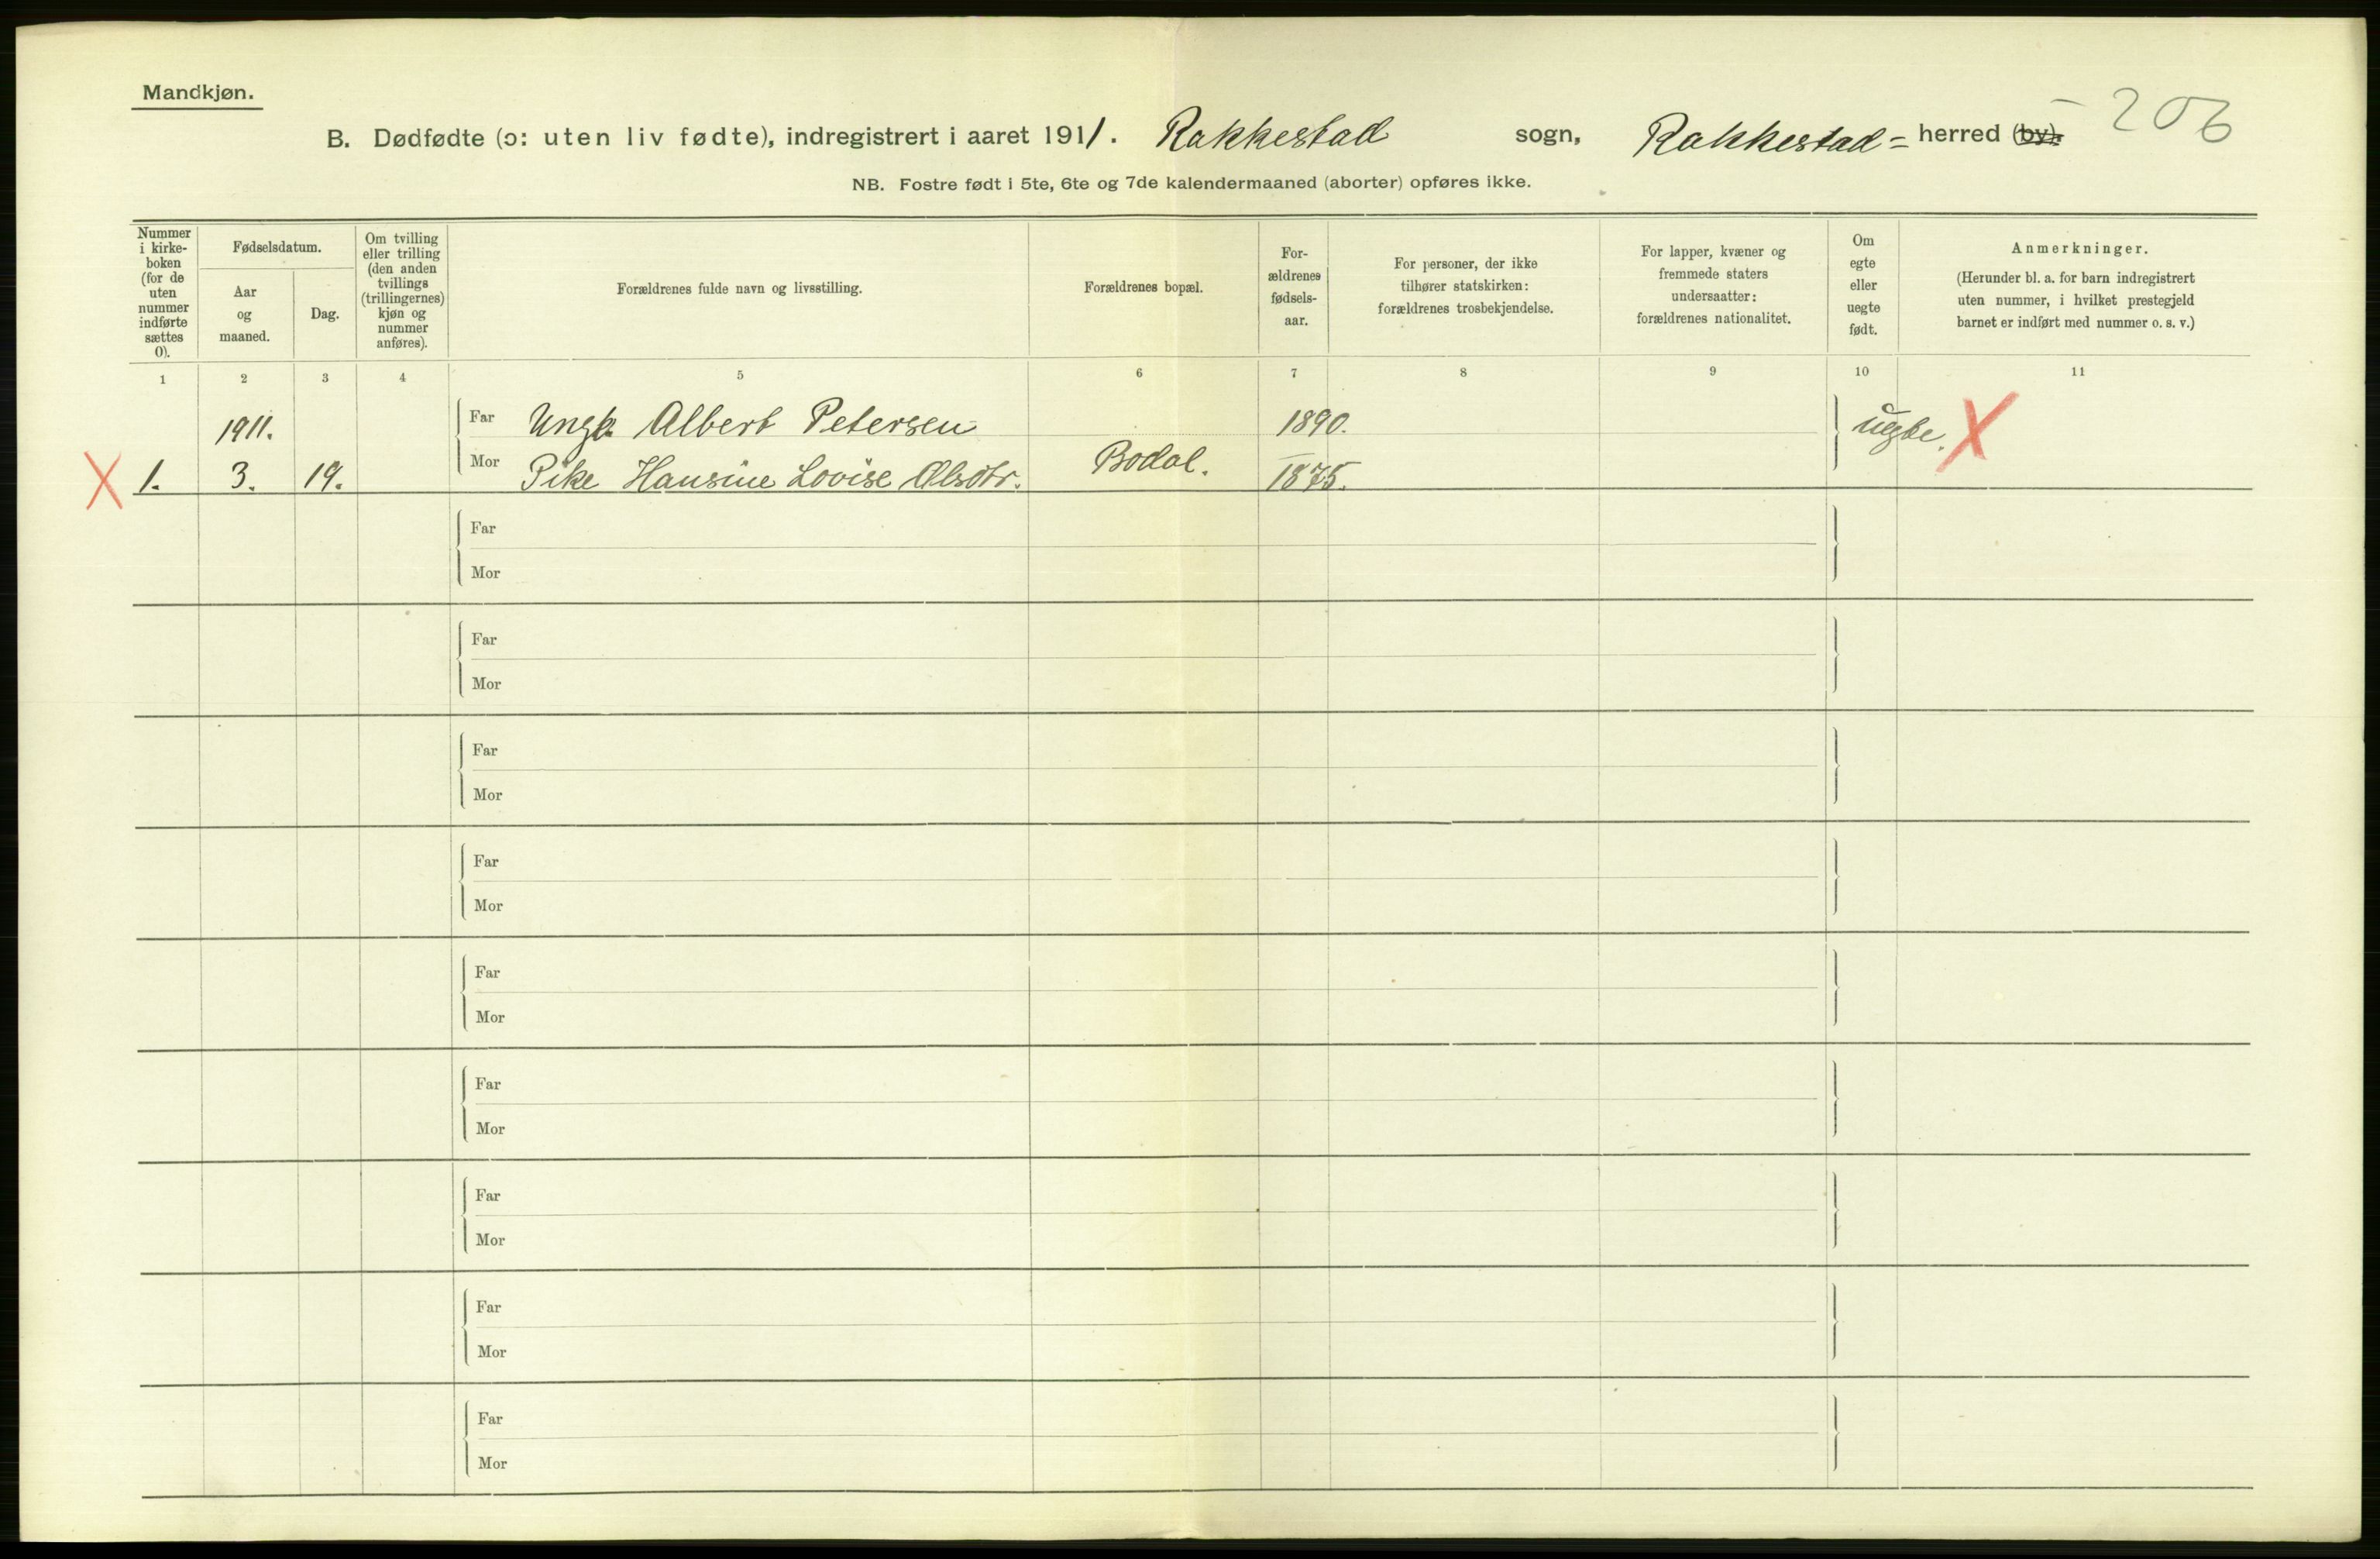 Mandkjøn.
206
B. Dødfødte (ɔ: uten liv fødte), indregistrert i aaret 1911. Rakkestad sogn, Rakkestad = herred (by).
NB. Fostre født i 5te, 6te og 7de kalendermaaned (aborter) opføres ikke.
Nummer
i kirke-
boken
(for de
uten
nummer
indførte
sættes
0).
Fødselsdatum.
Aar
og
maaned.
Dag.
Om tvilling
eller trilling
(den anden
tvillings
(trillingernes)
kjøn og
nummer
anføres).
Forældrenes fulde navn og livsstilling.
Forældrenes bopæl.
For-
ældrenes
fødsels-
aar.
For personer, der ikke
tilhører statskirken:
forældrenes trosbekjendelse.
For lapper, kvæner og
fremmede staters
undersaatter:
forældrenes nationalitet.
Om
egte
eller
uegte
født.
Anmerkninger.
(Herunder bl. a. for barn indregistrert
uten nummer, i hvilket prestegjeld
barnet er indført med nummer o. s. v.)
1 2 3 4 5 6 7 8 9 10 11
1911. Far Albert Petersen 1890. uegte. X
X 1. 3. 19. Mor Pike Hansine Lovise Olsdtr. Bodal. 1875.
Far
Mor
Far
Mor
Far
Mor
Far
Mor
Far
Mor
Far
Mor
Far
Mor
Far
Mor
Far
Mor